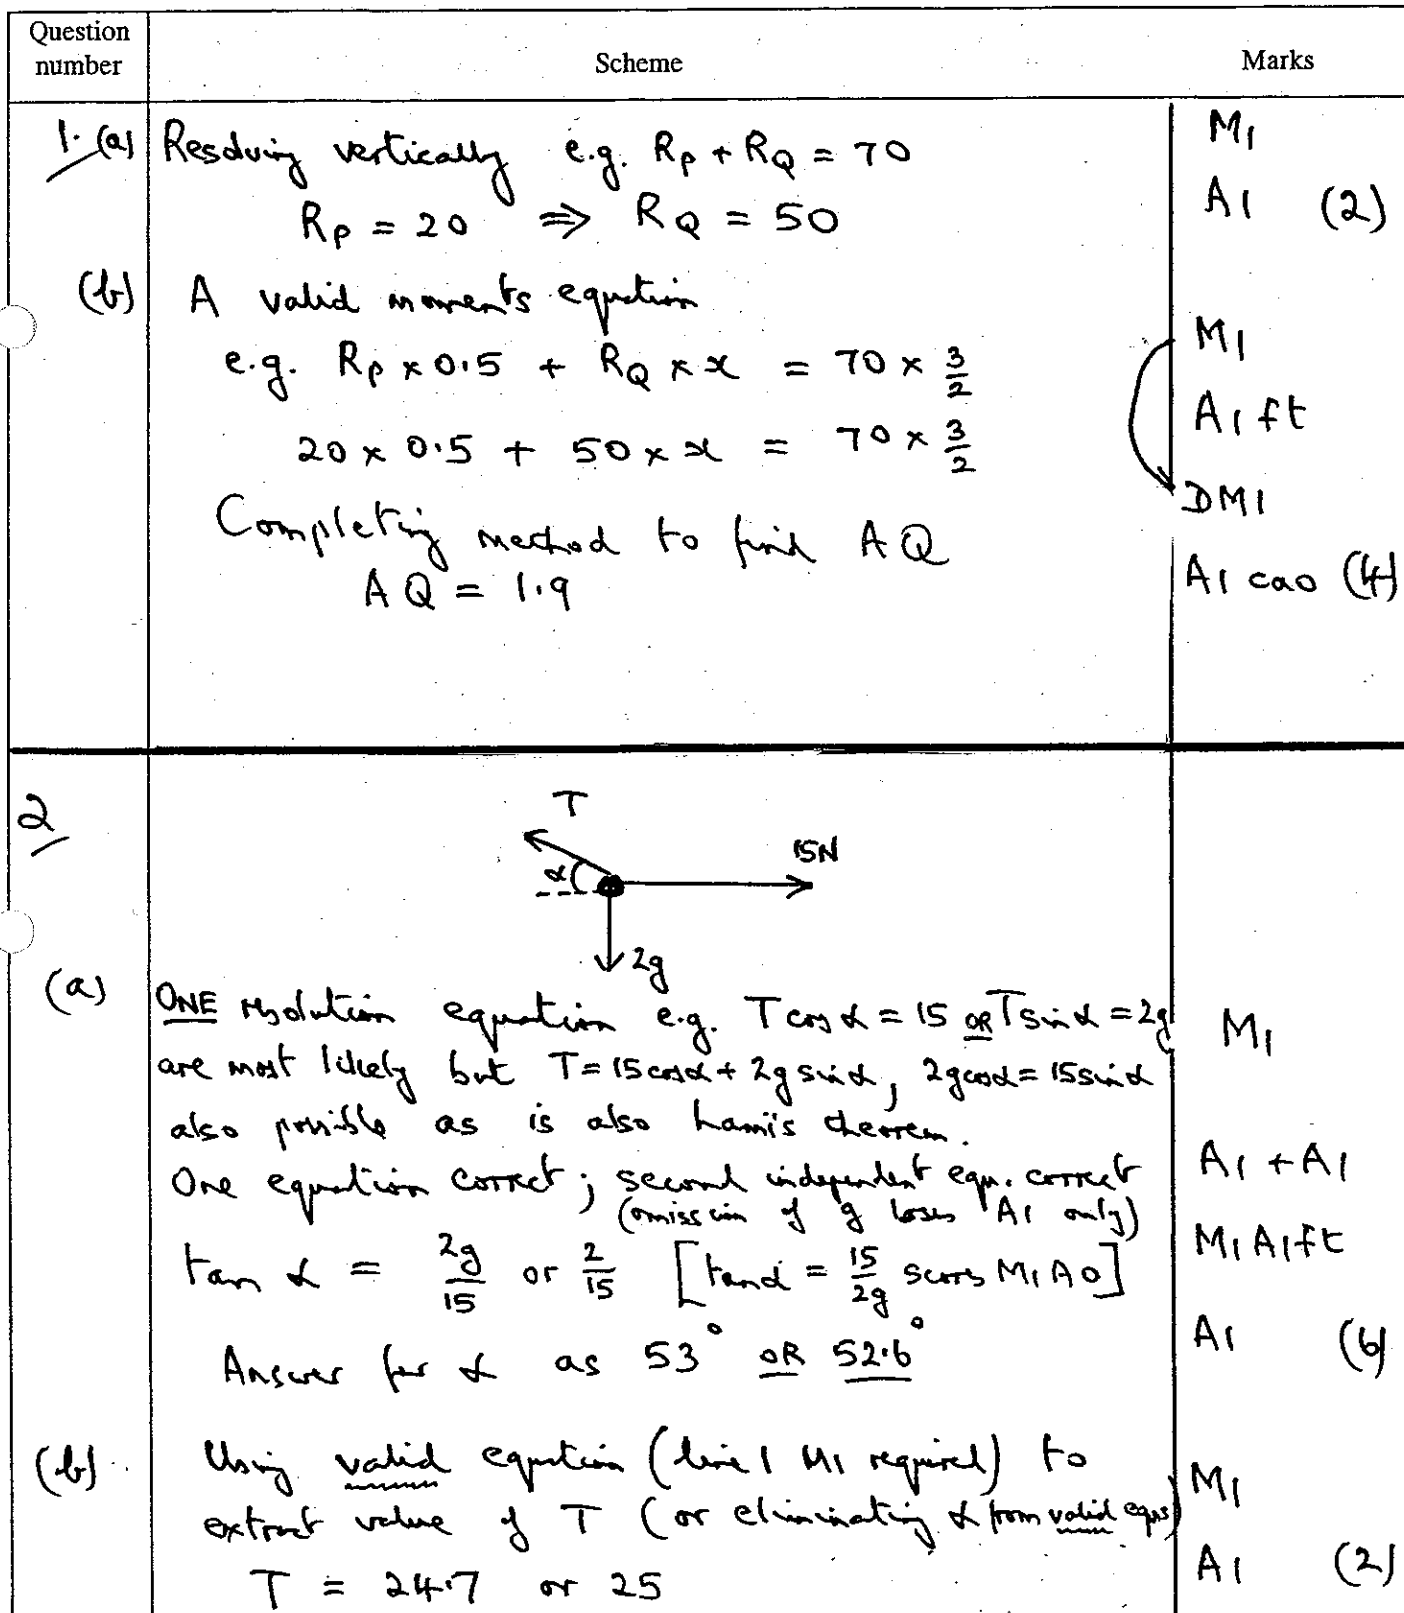 Question number Scheme Marks
1. (a) Resolving vertically e.g. R_P + R_Q = 70 M1
R_P = 20 ⇒ R_Q = 50 A1 (2)
(b) A valid moments equation
e.g. R_P × 0.5 + R_Q × x = 70 × 3/2 M1
20 × 0.5 + 50 × x = 70 × 3/2 A1 ft
DM1
Completing method to find AQ
AQ = 1.9 A1 cao (4)
2
T
α 15N
2g
(a) ONE resolution equation e.g. T cos α = 15 OR T sin α = 2g M1
are most likely but T = 15 cos α + 2g sin α, 2g cos α = 15 sin α
also possible as is also Lami's theorem.
One equation correct; second independent equn. correct A1 + A1
(omission of g loses A1 only)
tan α = 2g/15 or 2/15 [tan α = 15/2g scores M1 A0] M1 A1 ft
Answer for α as 53° OR 52.6° A1 (6)
(b) Using valid equation (line 1 M1 required) to
extract value of T (or eliminating α from valid eqns) M1
T = 24.7 or 25 A1 (2)